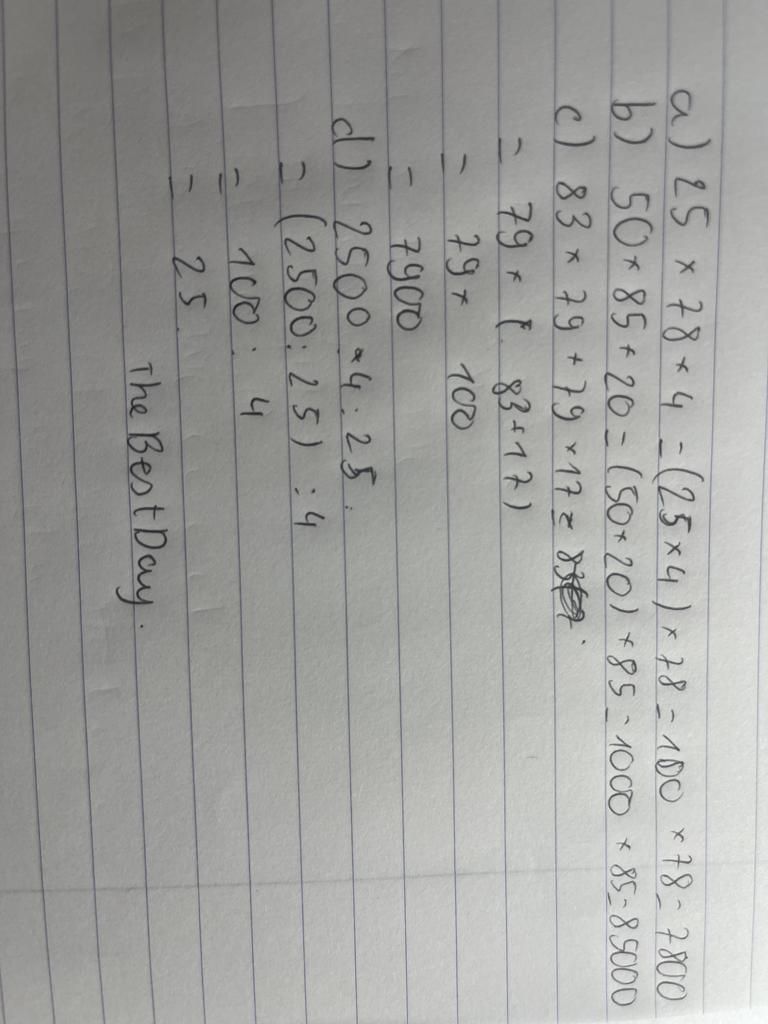 a) 25 × 78 × 4 = (25 × 4) × 78 = 100 × 78 = 7800
b) 50 × 85 × 20 = (50 × 20) × 85 = 1000 × 85 = 85000
c) 83 × 79 + 79 × 17 =
= 79 × ( 83 + 17 )
= 79 × 100
= 7900
d) 2500 × 4 : 25 :
= (2500 : 25) : 4
= 100 : 4
= 25.
The Best Day.